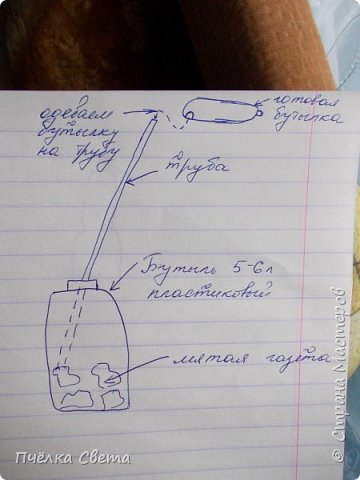 одеваем
бутылку
на трубу
готовая
бутылка
труба
Бутыль 5-6л
пластиковый
мятая газета
© Страна Мастеров
Пчёлка Света